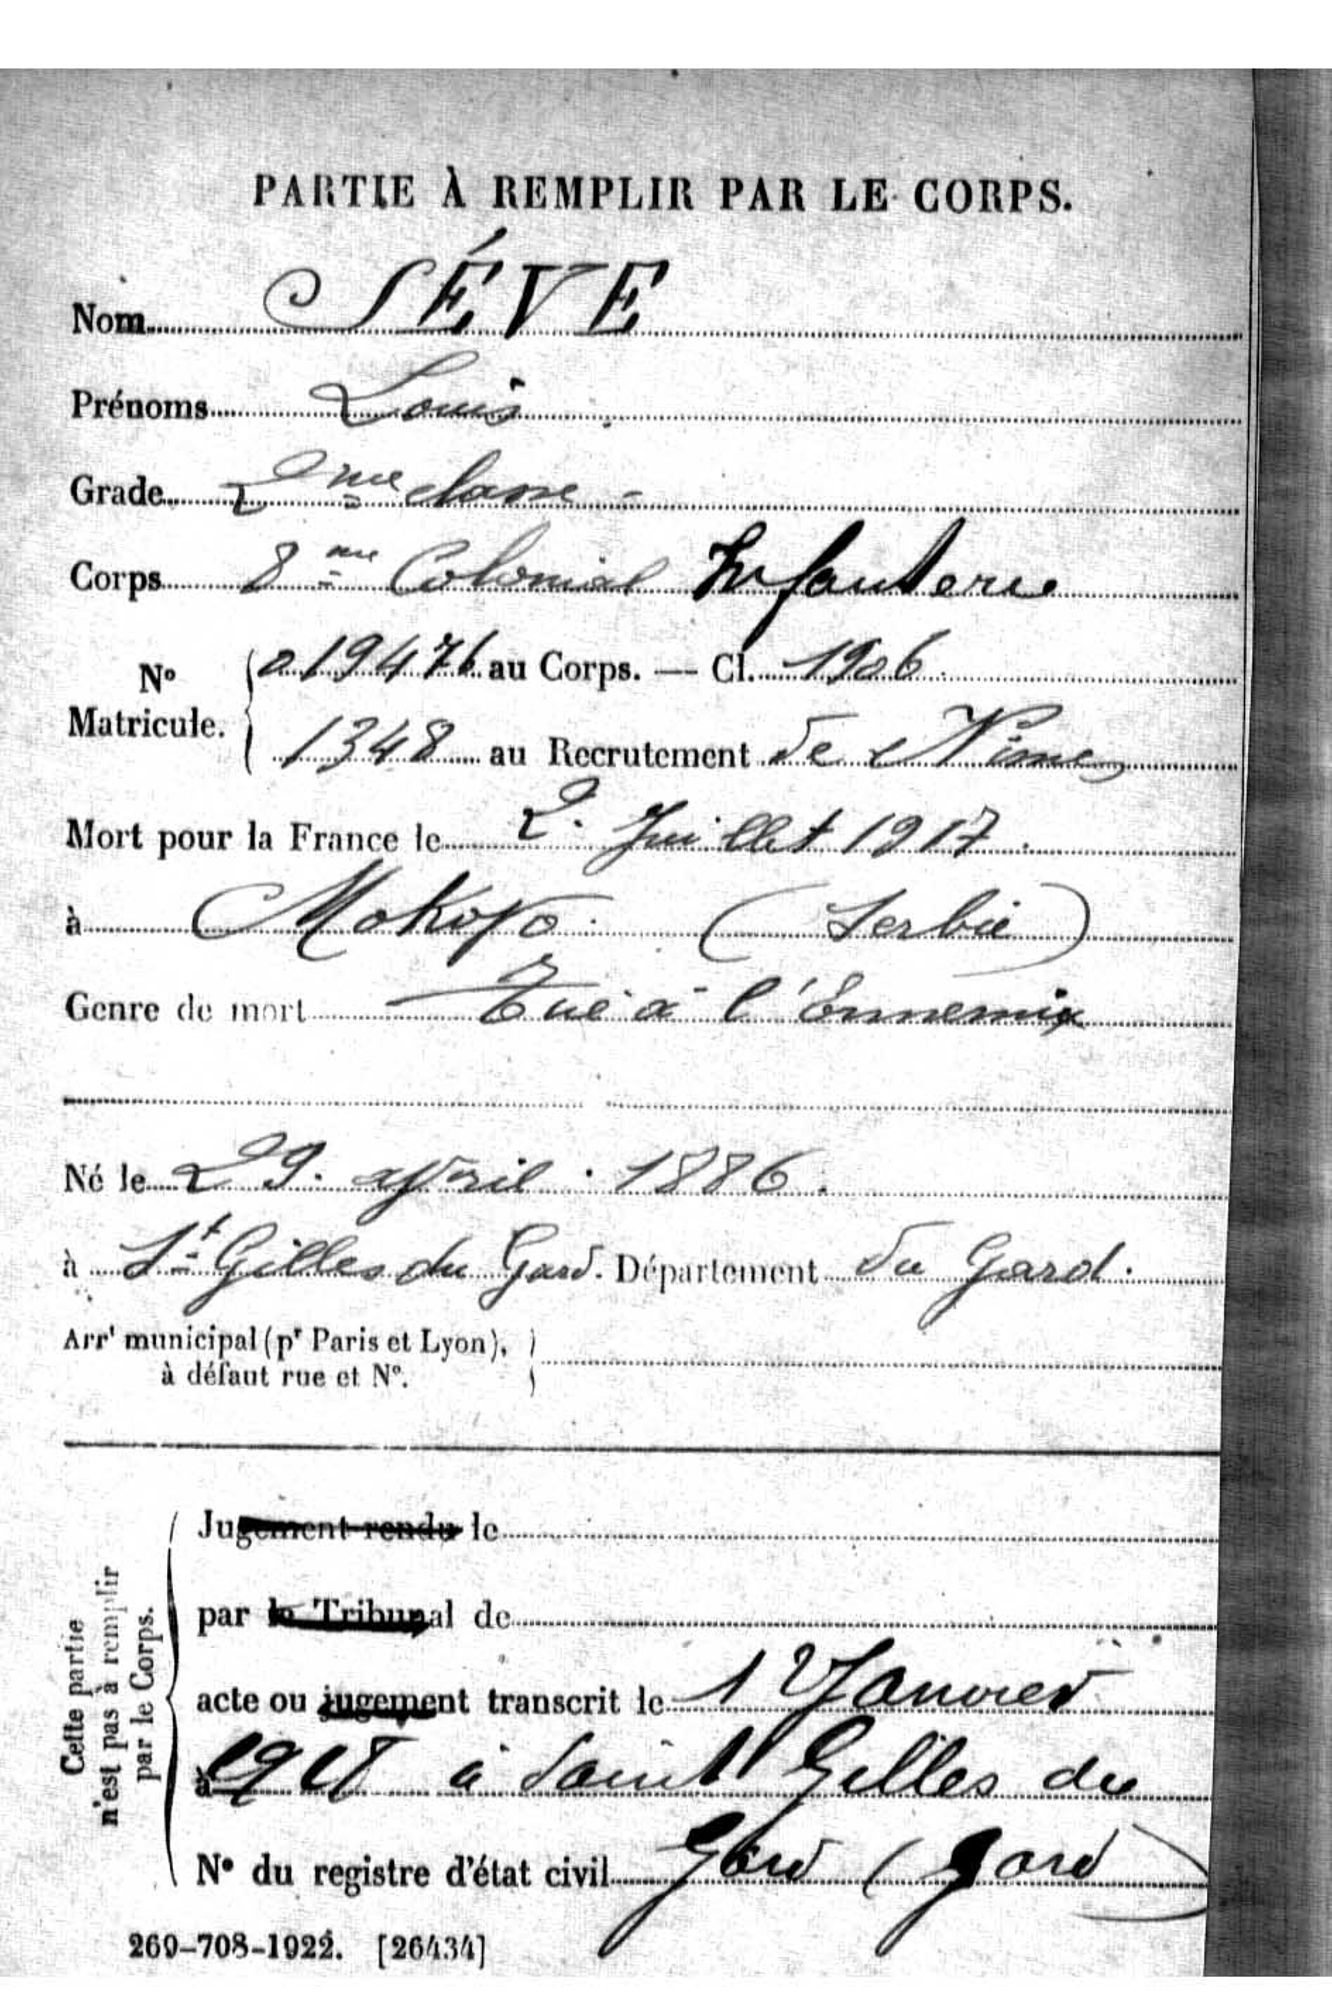 PARTIE À REMPLIR PAR LE CORPS.
Nom SÉVE
Prénoms Louis
Grade 2me classe -
Corps 8me Colonial Infanterie
No Matricule. { 019476 au Corps. — Cl. 1906
1348 au Recrutement de Nimes
Mort pour la France le 2. Juillet 1917.
à Mokovo. (Serbie)
Genre de mort Tué à l'Ennemi
Né le 29. avril. 1886.
à St Gilles du Gard. Département du Gard.
Arrt municipal (pr Paris et Lyon),
à défaut rue et N°.
Cette partie n'est pas à remplir par le Corps.
Jugement rendu le
par le Tribunal de
acte ou jugement transcrit le 1 Janvier
à 1918 à Saint Gilles du
N° du registre d'état civil Gard (Gard)
269-708-1922. [26434]